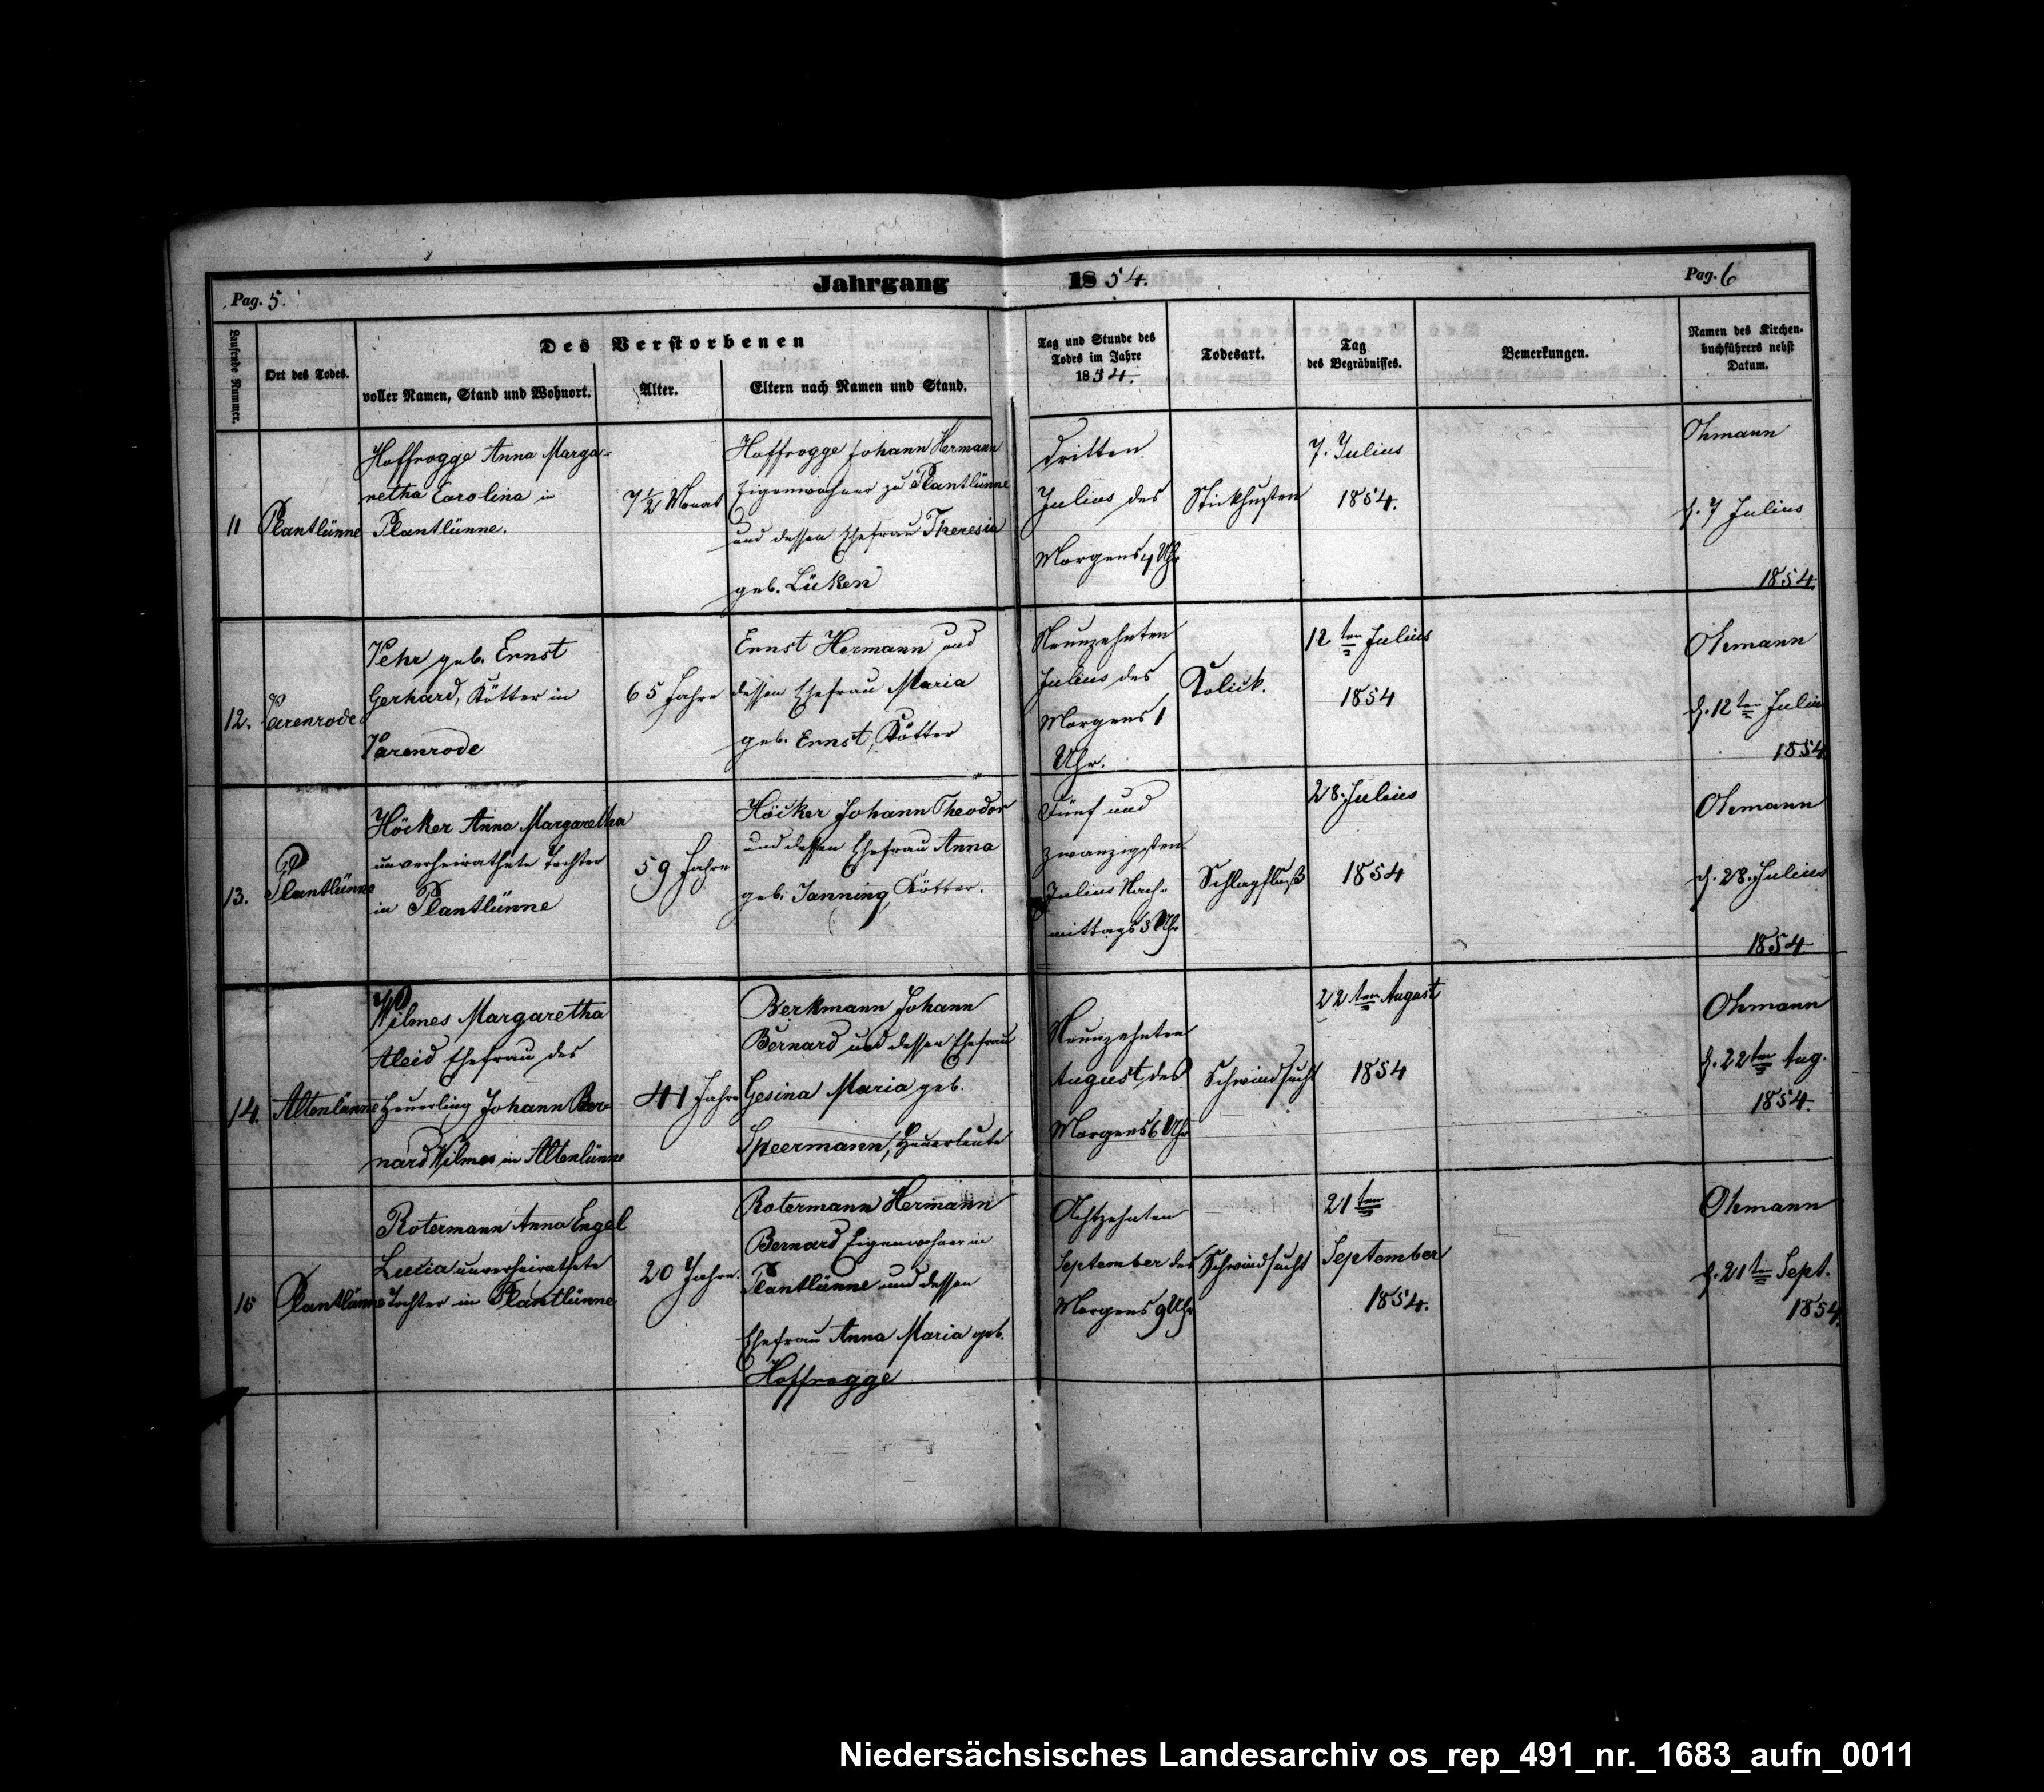 Pag. 5.
Jahrgang 1854.
Pag. 6
Laufende Nummer.
Ort des Todes.
Des Verstorbenen
voller Namen, Stand und Wohnort.
Alter.
Eltern nach Namen und Stand.
Tag und Stunde des
Todes im Jahre
1854.
Todesart.
Tag
des Begräbnisses.
Bemerkungen.
Namen des Kirchen-
buchführers nebst
Datum.
11
Plantlünne
Hoffrogge Anna Marga-
retha Carolina in
Plantlünne.
7½ Monat
Hoffrogge Johann Hermann
Eigenwohner zu Plantlünne
und dessen Ehefrau Theresia
geb. Lüken
Dritten
Julius des
Morgens 4 Uhr
Stickhusten
7. Julius
1854.
Ohmann
d. 7 Julius
1854.
12.
Varenrode
Vehr geb. Ernst
Gerhard, Kötter in
Varenrode
65 Jahre
Ernst Hermann und
dessen Ehefrau Maria
geb. Ernst, Kötter
Neunzehnten
Julius des
Morgens 1
Uhr.
Kolick.
12ten Julius
1854
Ohmann
d. 12ten Julius
1854
13.
Plantlünne
Höcker Anna Margaretha
unverheirathete Tochter
in Plantlünne
59 Jahre
Höcker Johann Theodor
und dessen Ehefrau Anna
geb. Janning, Kötter.
Fünf und
zwanzigsten
Julius Nach-
mittags 3 Uhr
Schlagfluß
28. Julius
1854
Ohmann
d. 28. Julius
1854
14.
Altenlünne
Wilmes Margaretha
Aleid Ehefrau des
Heuerling Johann Ber-
nard Wilmes in Altenlünne
41 Jahre
Berkmann Johann
Bernard und dessen Ehefrau
Gesina Maria geb.
Speermann, Heuerleute
Neunzehnten
August, des
Morgens 6 Uhr
Schwindsucht
22ten August
1854
Ohmann
d. 22ten Aug.
1854.
15
Plantlünne
Rotermann Anna Engel
Lucia unverheirathete
Tochter in Plantlünne
20 Jahre.
Rotermann Hermann
Bernard Eigenwohner in
Plantlünne und dessen
Ehefrau Anna Maria geb.
Hoffrogge
Achtzehnten
September des
Morgens 9 Uhr
Schwindsucht
21ten
September
1854.
Ohmann
d. 21ten Sept.
1854.
Niedersächsisches Landesarchiv os_rep_491_nr._1683_aufn_0011